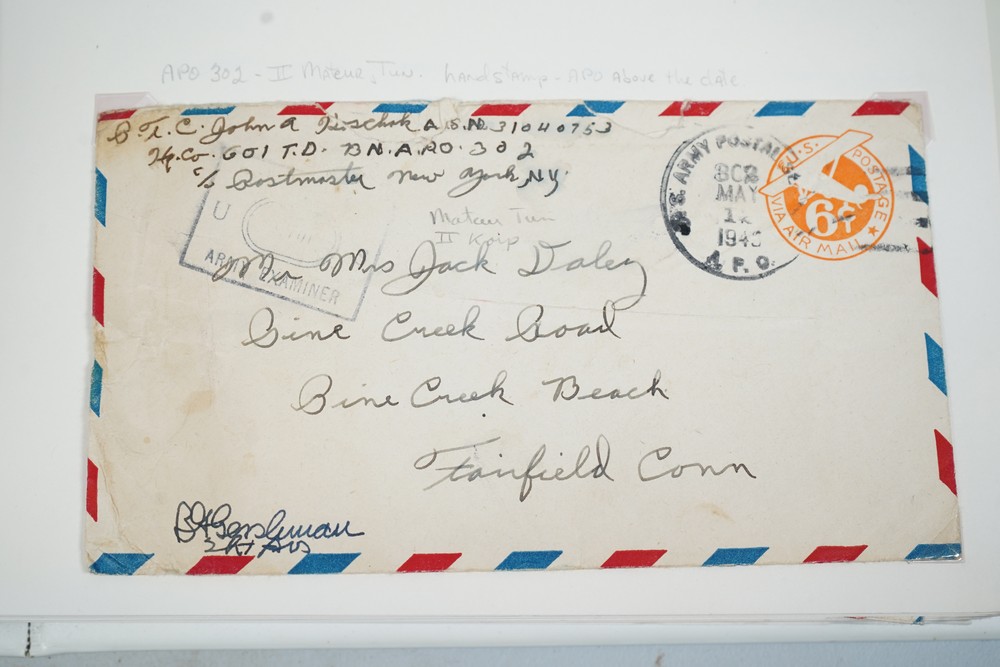 APO 302 - II Mateur, Tun. handstamp - APO above the date
John A A.S.N. 31040753
Hq. Co. 601 T.D. BN. A.P.O. 302
c/o Postmaster New York, N.Y.
U.S. ARMY POSTAL
302
MAY
1943
A.P.O.
U.S. POSTAGE
6¢
VIA AIR MAIL
Mateur Tun
II
U
ARMY EXAMINER
Mr Mrs Jack Daley
Pine Creek Road
Pine Creek Beach
Fairfield Conn